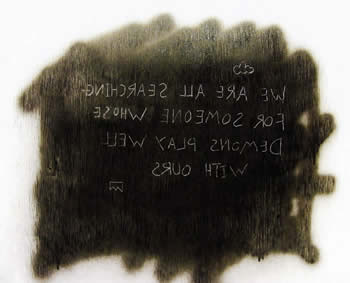 WE ARE ALL SEARCHING
FOR SOMEONE WHOSE
DEMONS PLAY WELL
WITH OURS